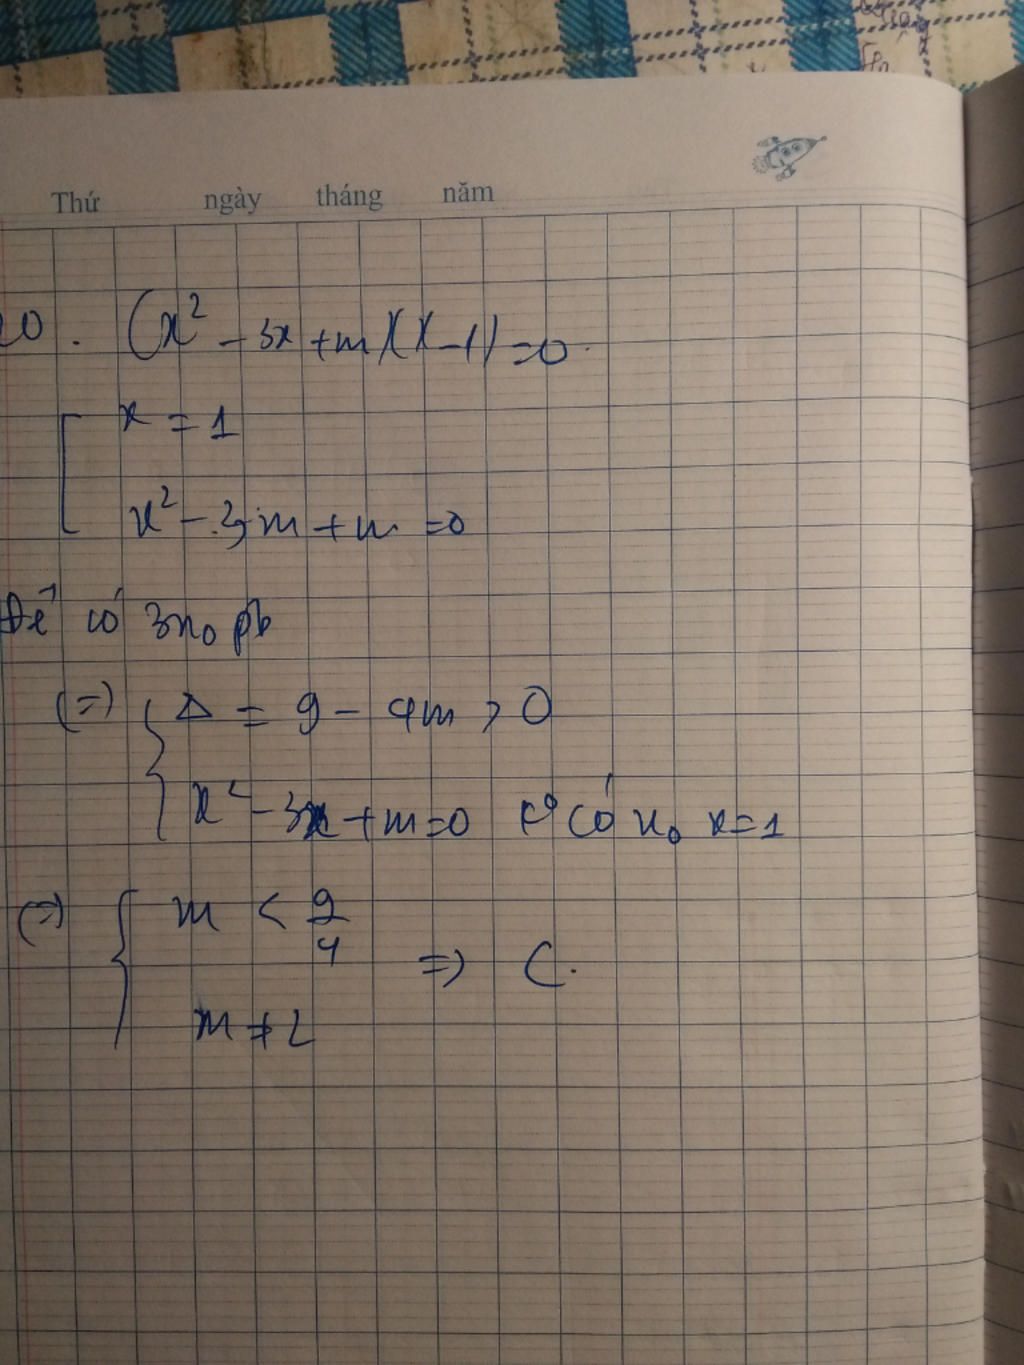 Thứ ngày tháng năm
20. (x² - 3x + m)(x - 1) = 0.
x = 1
x² - 3m + m = 0
Để có 3n₀ pb
(=) Δ = 9 - 4m > 0
x² - 3x + m = 0 k° có n₀ x = 1
(=) m < 9/4
=) C.
m ≠ 2